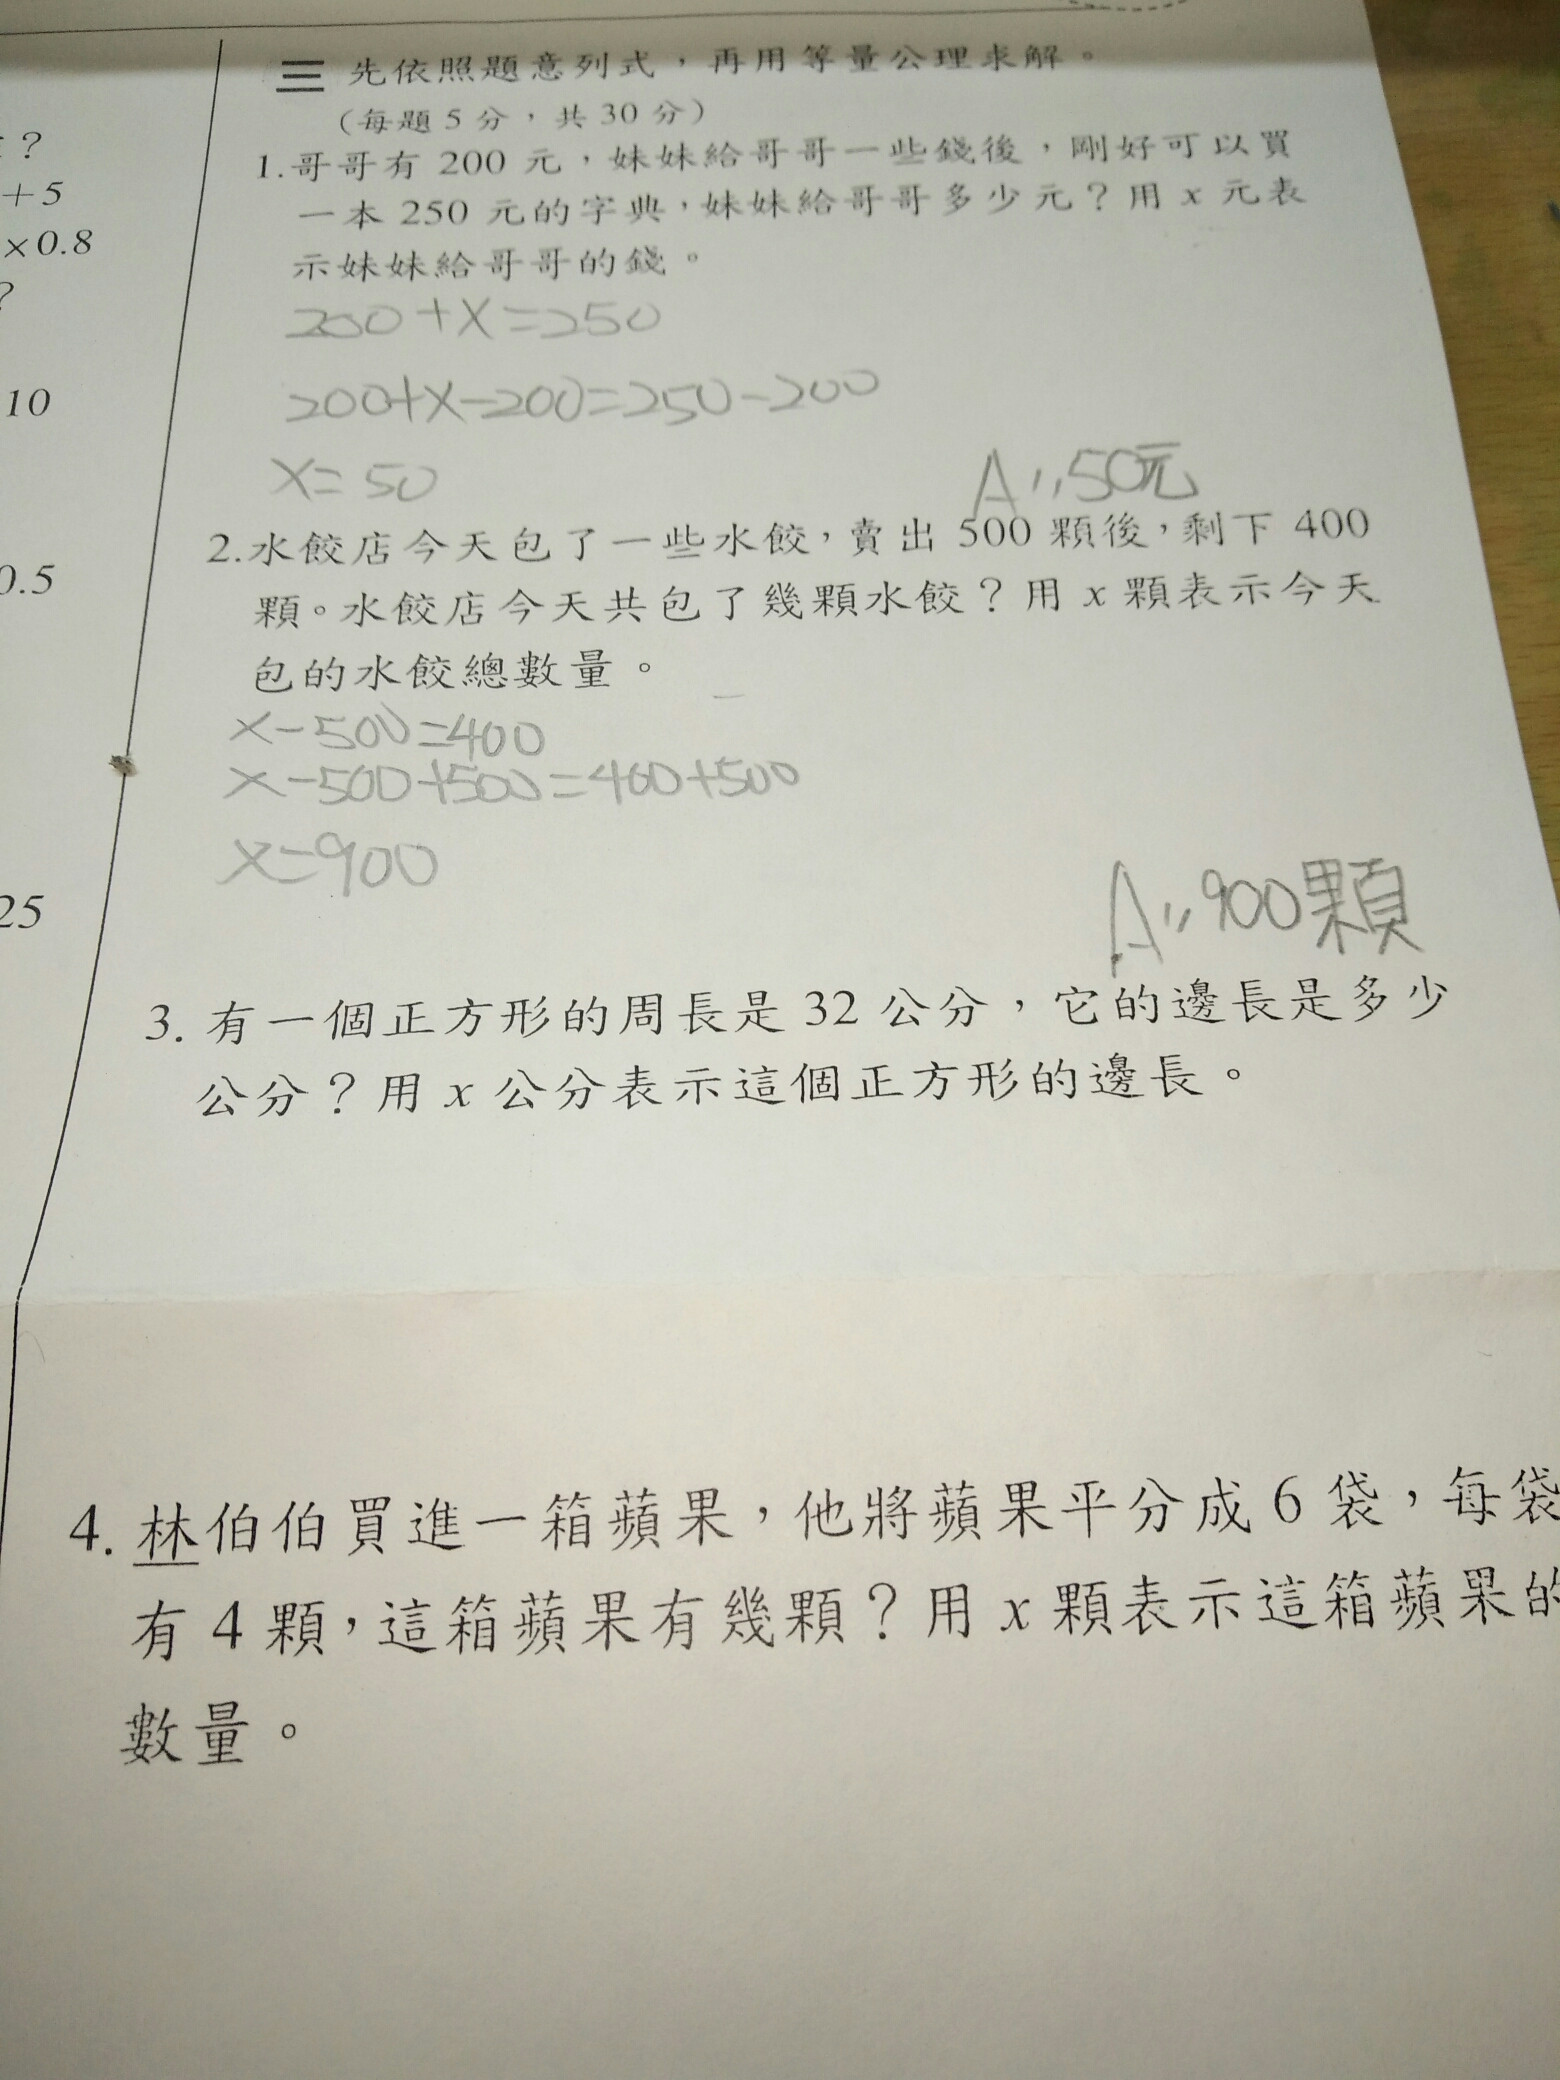 : ?
+5
×0.8
?
10
0.5
25
三 先依照題意列式，再用等量公理求解。
（每題5分，共30分）
1.哥哥有 200 元，妹妹給哥哥一些錢後，剛好可以買
一本 250 元的字典，妹妹給哥哥多少元？用 x 元表
示妹妹給哥哥的錢。
200+x=250
200+x-200=250-200
x=50
A:,,50元
2.水餃店今天包了一些水餃，賣出 500 顆後，剩下 400
顆。水餃店今天共包了幾顆水餃？用 x 顆表示今天
包的水餃總數量。
x-500=400
x-500+500=400+500
x=900
A:,,900顆
3. 有一個正方形的周長是 32 公分，它的邊長是多少
公分？用 x 公分表示這個正方形的邊長。
4. 林伯伯買進一箱蘋果，他將蘋果平分成 6 袋，每袋
有 4 顆，這箱蘋果有幾顆？用 x 顆表示這箱蘋果的
數量。